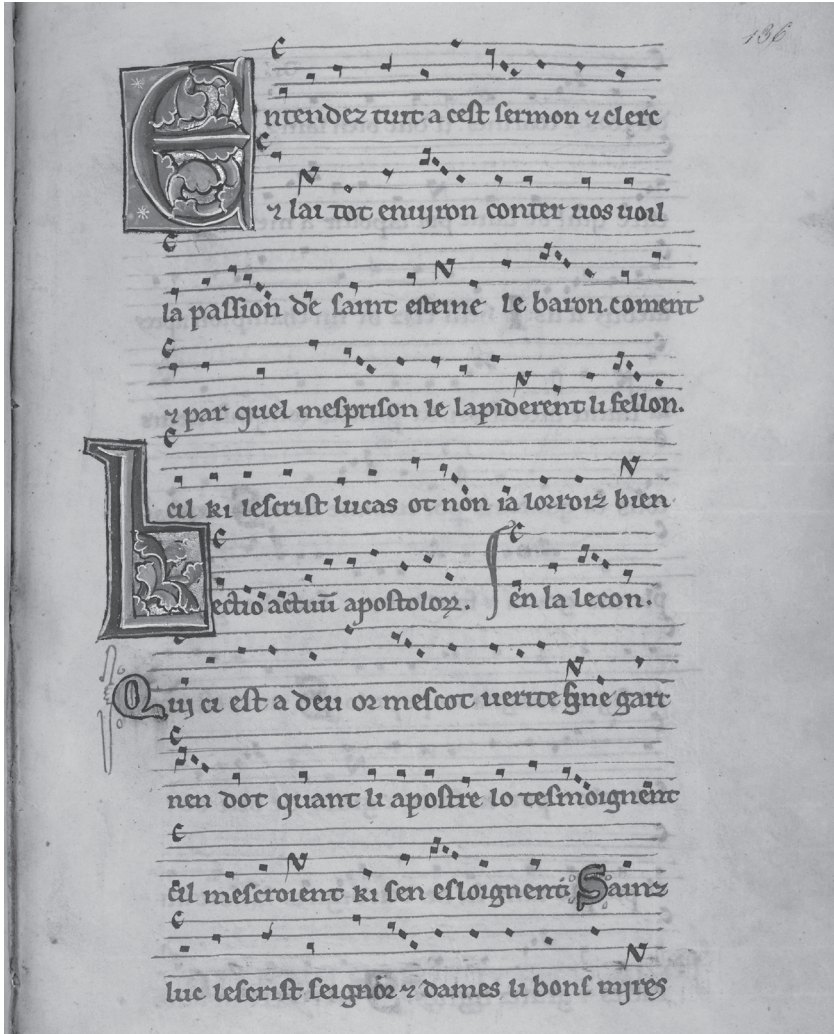 136
Entendez tuit a cest sermon ⁊ clerc
⁊ lai tot enuiron conter uos uoil
la passion de saint esteine le baron. coment
⁊ par quel mesprison le lapiderent li fellon.
cil ki lescrist lucas ot non ia lorroiz bien
Lectio actuū apostoloꝝ. en la lecon.
Qui ci est a deu or mescot uerite gart
nen dot quant li apostre lo tesmoignent
cil mescroient ki sen esloignent Sainz
luc lescrist seignor ⁊ dames li bons mires